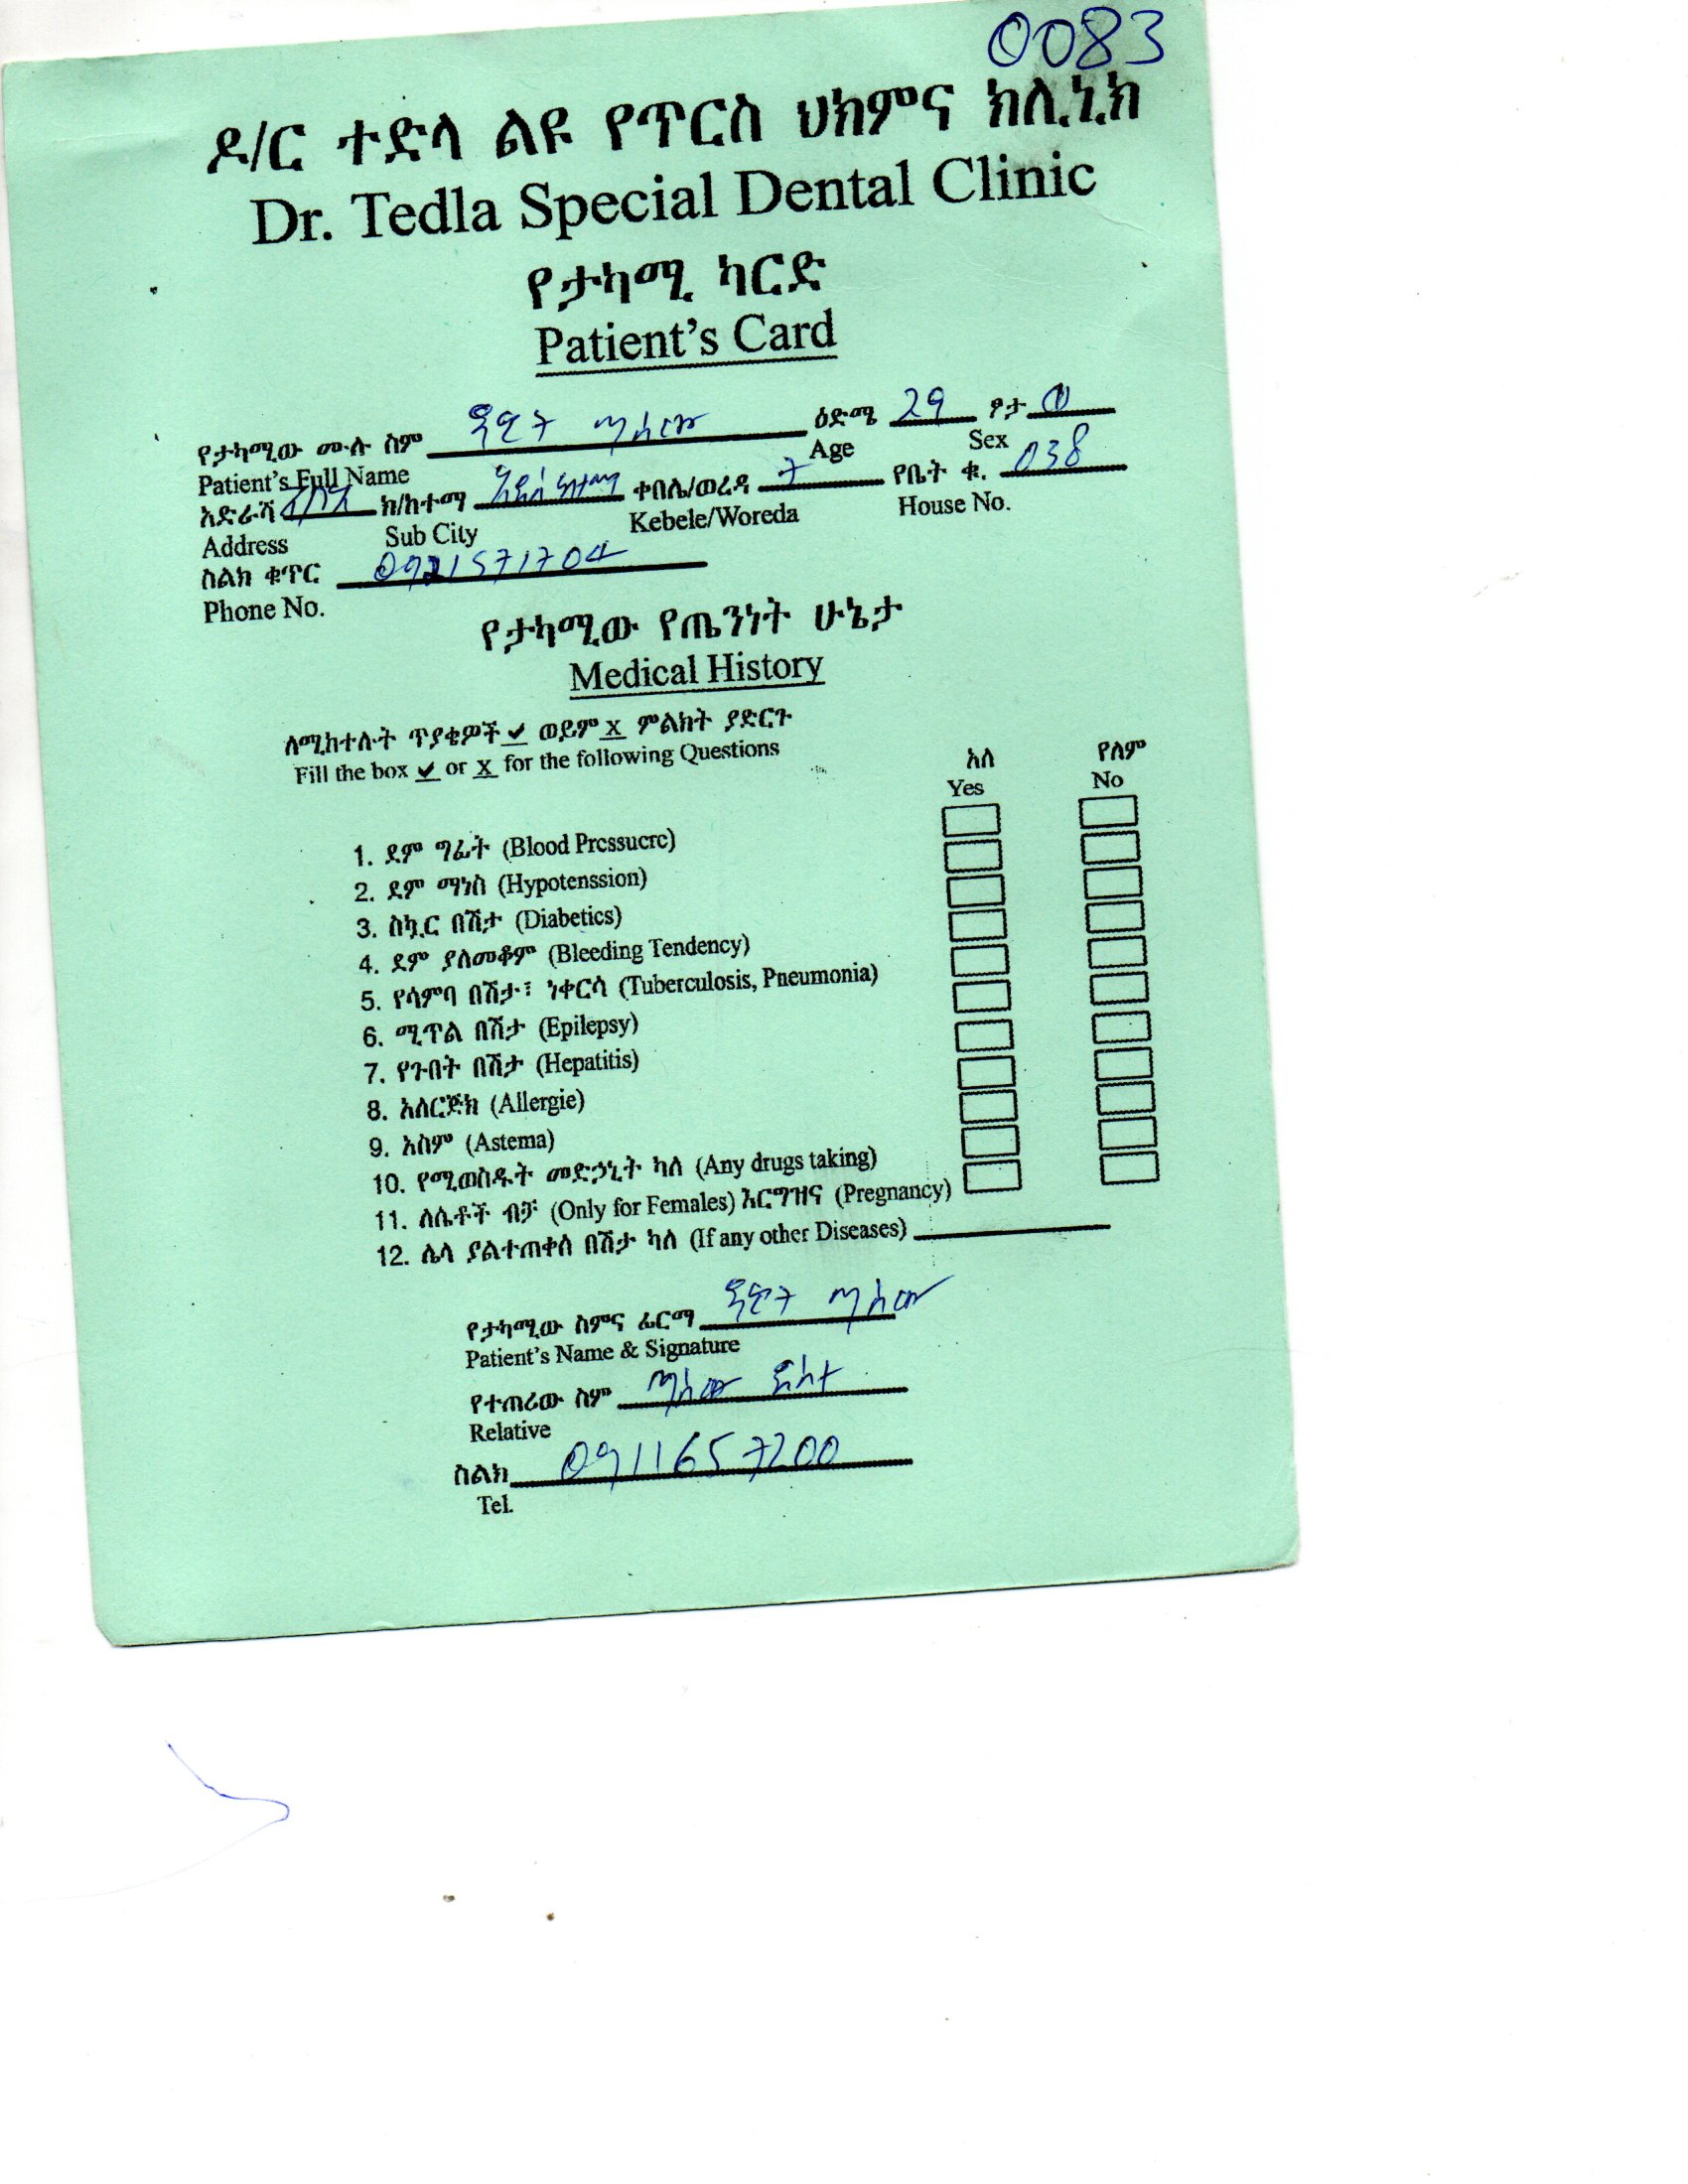 0083
ዶ/ር ተድላ ልዩ የጥርስ ህክምና ክሊኒክ
Dr. Tedla Special Dental Clinic
የታካሚ ካርድ
Patient's Card
የታካሚው ሙሉ ስም ዳዊት ጣሰው ዕድሜ 29 ፆታ
Patient's Full Name Age Sex
አድራሻ ክ/ከተማ አዲስ ከተማ ቀበሌ/ወረዳ 7 የቤት ቁ. 038
Address Sub City Kebele/Woreda House No.
ስልክ ቁጥር 0921571704
Phone No.
የታካሚው የጤንነት ሁኔታ
Medical History
ለሚከተሉት ጥያቄዎች ✔ ወይም X ምልክት ያድርጉ
Fill the box ✔ or X for the following Questions
አለ የለም
Yes No
1. ደም ግፊት (Blood Pressucre)
2. ደም ማነስ (Hypotenssion)
3. ስኳር በሽታ (Diabetics)
4. ደም ያለመቆም (Bleeding Tendency)
5. የሳምባ በሽታ፣ ነቀርሳ (Tuberculosis, Pneumonia)
6. ሚጥል በሽታ (Epilepsy)
7. የጉበት በሽታ (Hepatitis)
8. አለርጅክ (Allergie)
9. አስም (Astema)
10. የሚወስዱት መድኃኒት ካለ (Any drugs taking)
11. ለሴቶች ብቻ (Only for Females) እርግዝና (Pregnancy)
12. ሌላ ያልተጠቀሰ በሽታ ካለ (If any other Diseases)
የታካሚው ስምና ፊርማ ዳዊት ጣሰው
Patient's Name & Signature
የተጠሪው ስም ጣሰው ደስታ
Relative
ስልክ 0911657200
Tel.